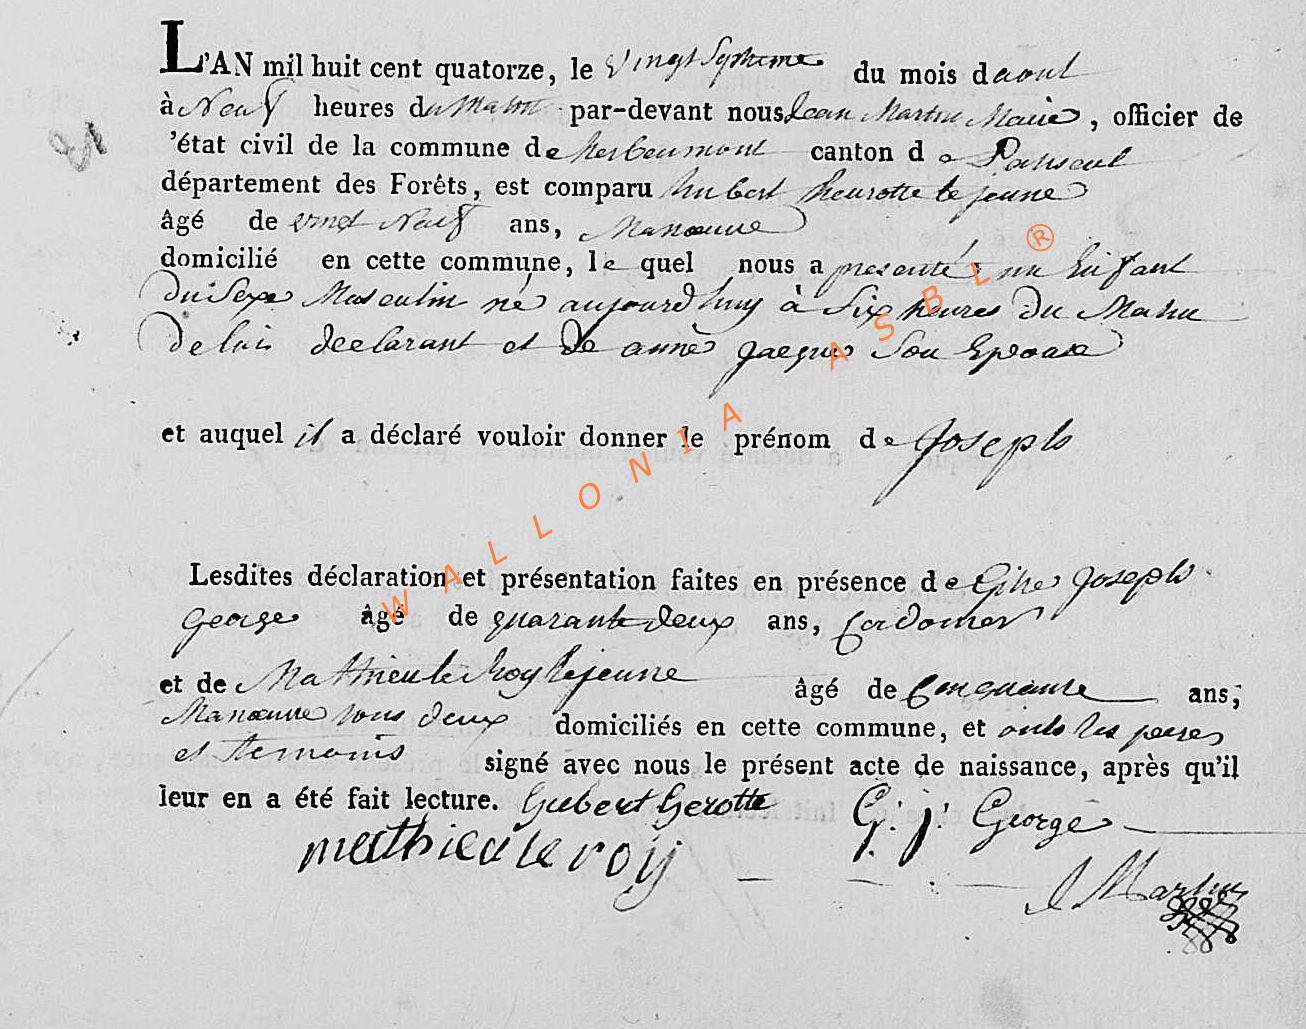 L'AN mil huit cent quatorze, le vingt septieme du mois d aout
à Neuf heures du Matin par-devant nous Jean Martin Maire, officier de
'état civil de la commune de herbeumont canton de Paliseul
département des Forêts, est comparu hubert heurotte le jeune
âgé de vingt Neuf ans, Manoeuvre
domicilié en cette commune, le quel nous a presenté un Enfant
Du Sexe Masculin né aujourd huy à Six heures Du Matin
De luis declarant et De anne Jacques Son Epouse
et auquel il a déclaré vouloir donner le prénom de Joseph
Lesdites déclaration et présentation faites en présence de Gille Joseph
George âgé de quarante Deux ans, Cordonier
et de Mathieu le Roy le jeune âgé de Cinquante ans,
Manoeuvre tous deux domiciliés en cette commune, et onts les peres
et temoins signé avec nous le présent acte de naissance, après qu'il
leur en a été fait lecture. Hubert Herotte G. j. George
mathieu le roy
J Martin
WALLONIA ASBL ®